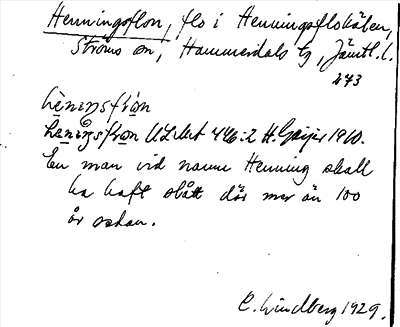 Henningsflon, flo i Henningsflohålen,
Ströms sn, Hammerdals tg, Jämtl. l.
243
hèniŋsflo̱n
hèniŋsflo̱n ULMA 446:2 H. Geijer 1910.
En man vid namn Henning skall
ha haft slått där mer än 100
år sedan.
C. Lindberg 1929.